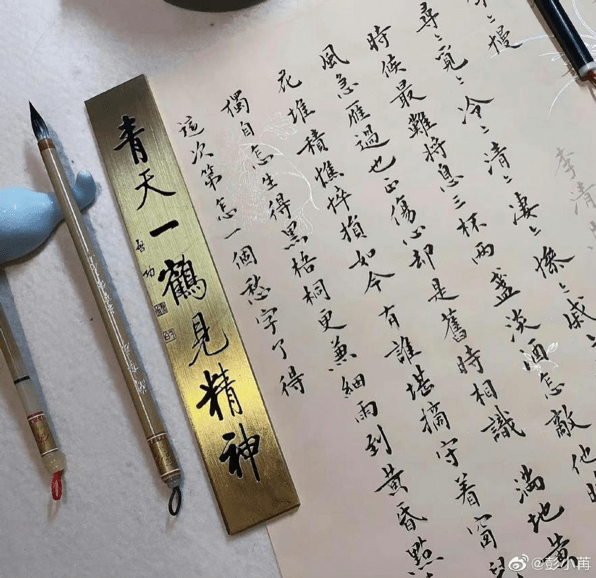 〻慢
李清
尋〻覓〻冷〻清〻凄〻慘〻戚〻
時候最難將息三杯兩盞淡酒怎敵他
風急雁過也正傷心却是舊時相識 滿地黃
花堆積憔悴損如今有誰堪摘守着窗
獨自怎生得黑梧桐更兼細雨到黃昏點
這次第怎一個愁字了得
青天一鶴見精神
啟功
@彭小苒